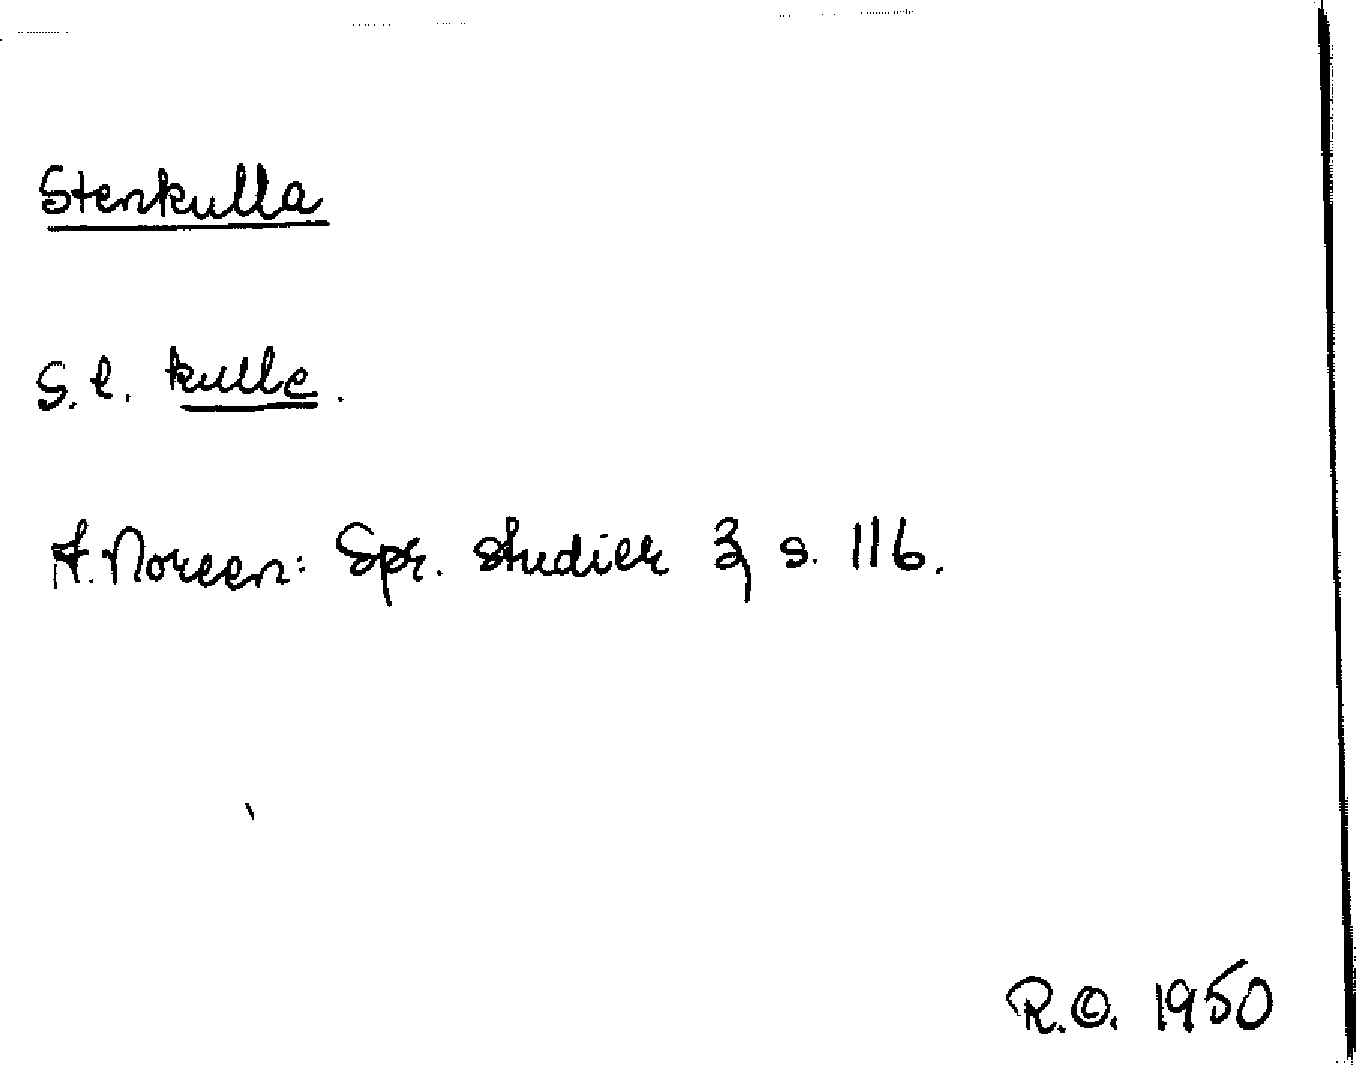 Stenkulla
S. l. kulle.
A. Noreen: Spr. studier 3, s. 116.
R.O. 1950